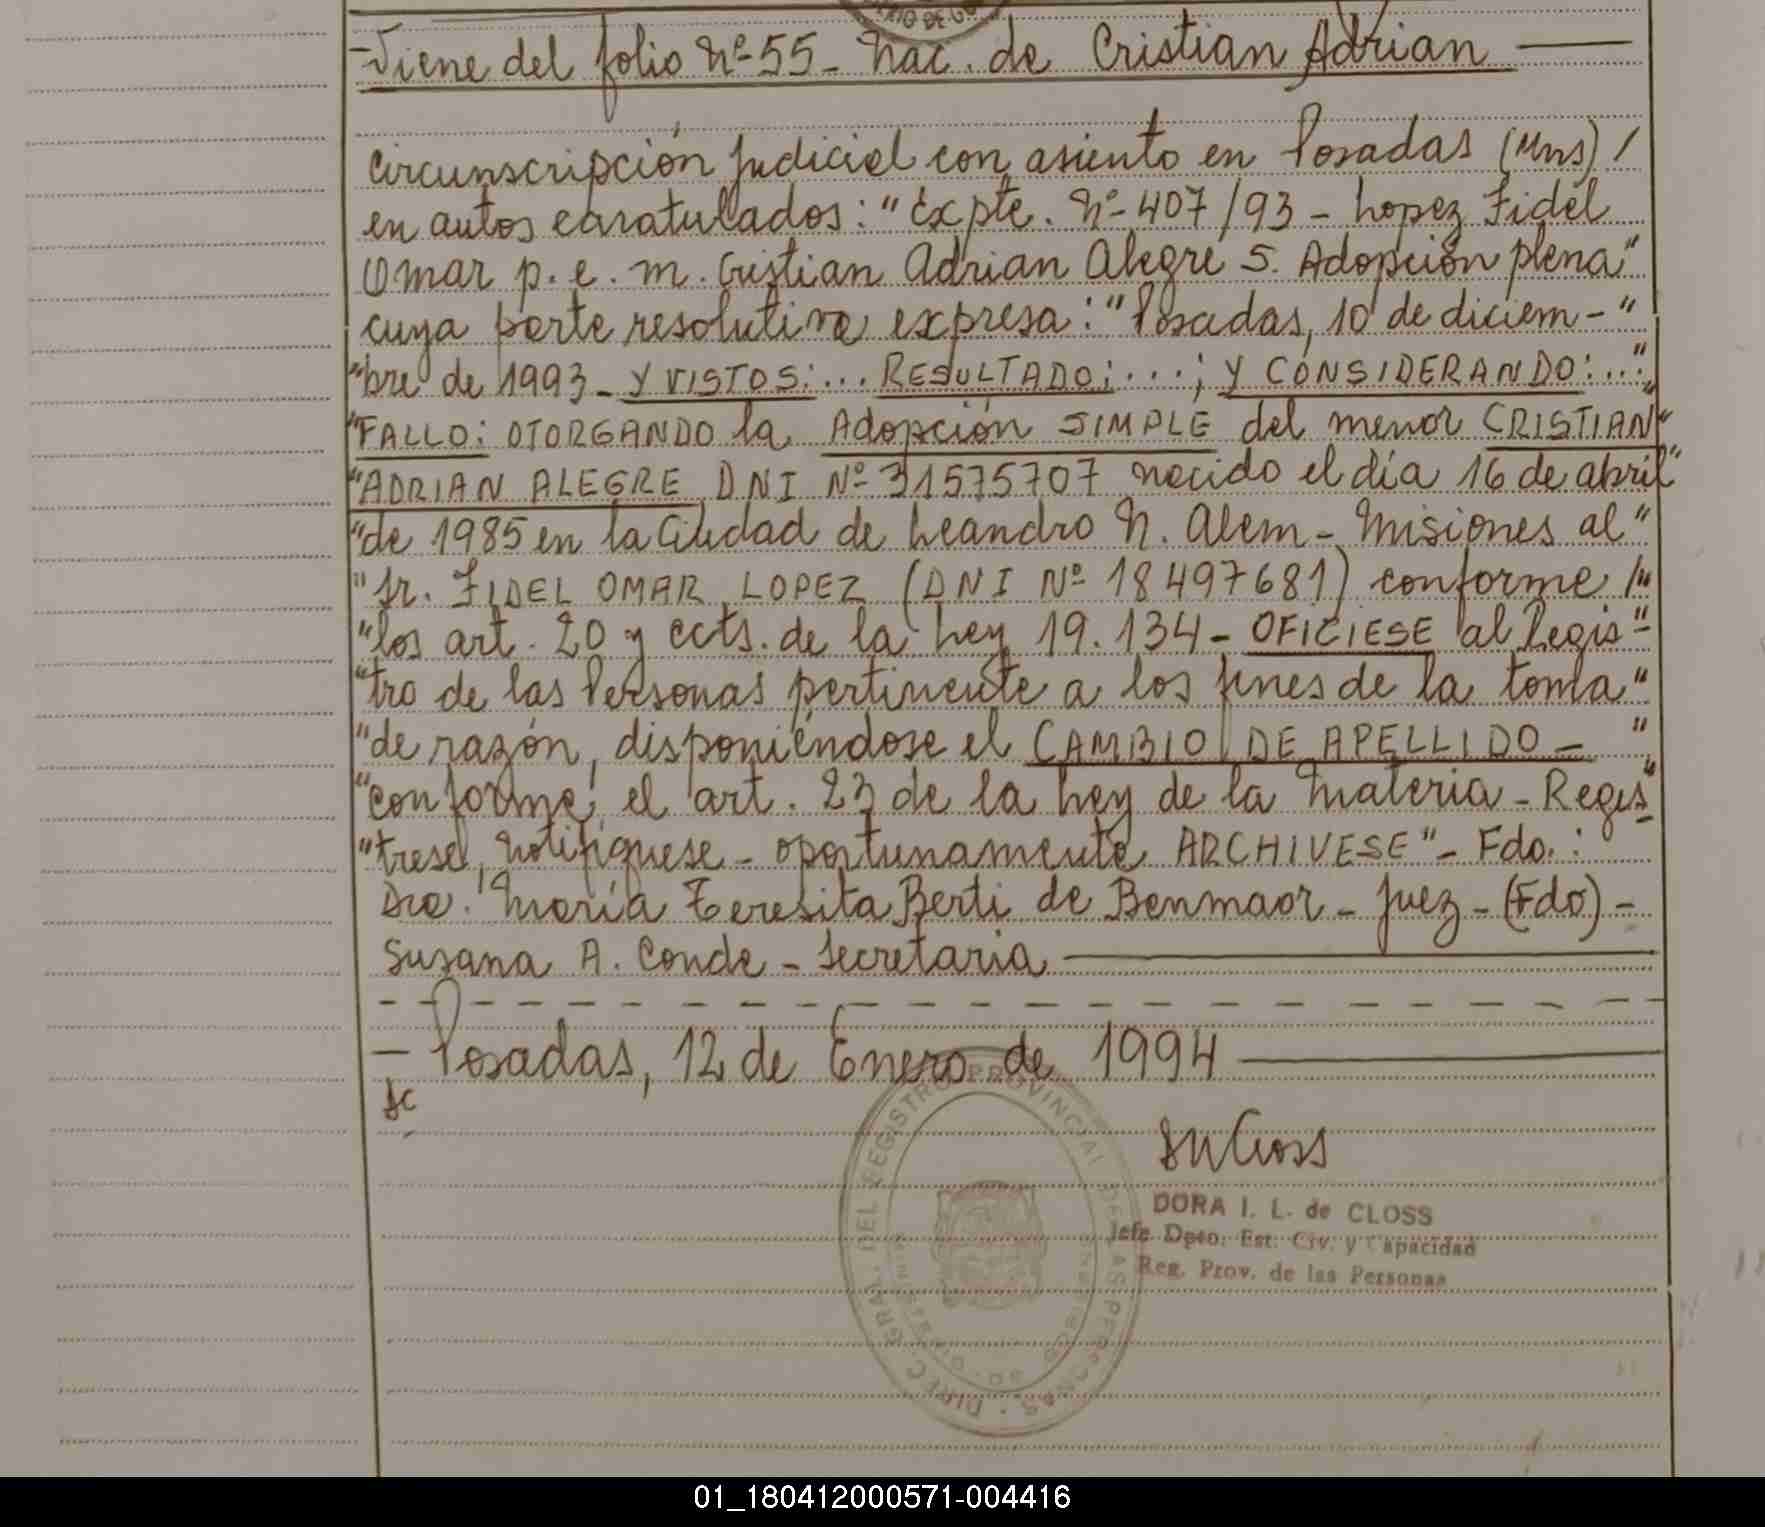 -Viene del folio Nº 55- Nac. de Cristian Adrian
circunscripción judicial con asiento en Posadas (Mns) /
en autos caratulados: "Expte. Nº 407/93 - Lopez Fidel
Omar p. e. m. Cristian Adrian Alegre S. Adopción plena"
cuya parte resolutiva expresa: "Posadas, 10 de diciem-"
"bre de 1993 - Y VISTOS:... RESULTADO;...; Y CONSIDERANDO:..."
"FALLO: OTORGANDO la Adopción SIMPLE del menor CRISTIAN"
"ADRIAN ALEGRE DNI Nº 31575707 nacido el día 16 de abril"
"de 1985 en la Ciudad de Leandro N. Alem - Misiones al"
"Sr. FIDEL OMAR LOPEZ (DNI Nº 18497681) conforme /"
"los art. 20 y ccts. de la Ley 19.134 - OFICIESE al Regis"-
"tro de las Personas pertinente a los fines de la toma"
"de razón, disponiéndose el CAMBIO DE APELLIDO - "
"conforme el art. 23 de la Ley de la materia - Regis"
"trese, notifíquese - oportunamente ARCHIVESE" - Fdo. :
Dra. María Teresita Berti de Benmaor - Juez - (Fdo) -
Susana A. Conde - Secretaria
- Posadas, 12 de Enero de 1994
sc
DIREC. GRAL. DEL REGISTRO PROVINCIAL DE LAS PERSONAS
DORA I. L. de CLOSS
Jefe Dpto. Est. Civ. y Capacidad
Reg. Prov. de las Personas
01_180412000571-004416